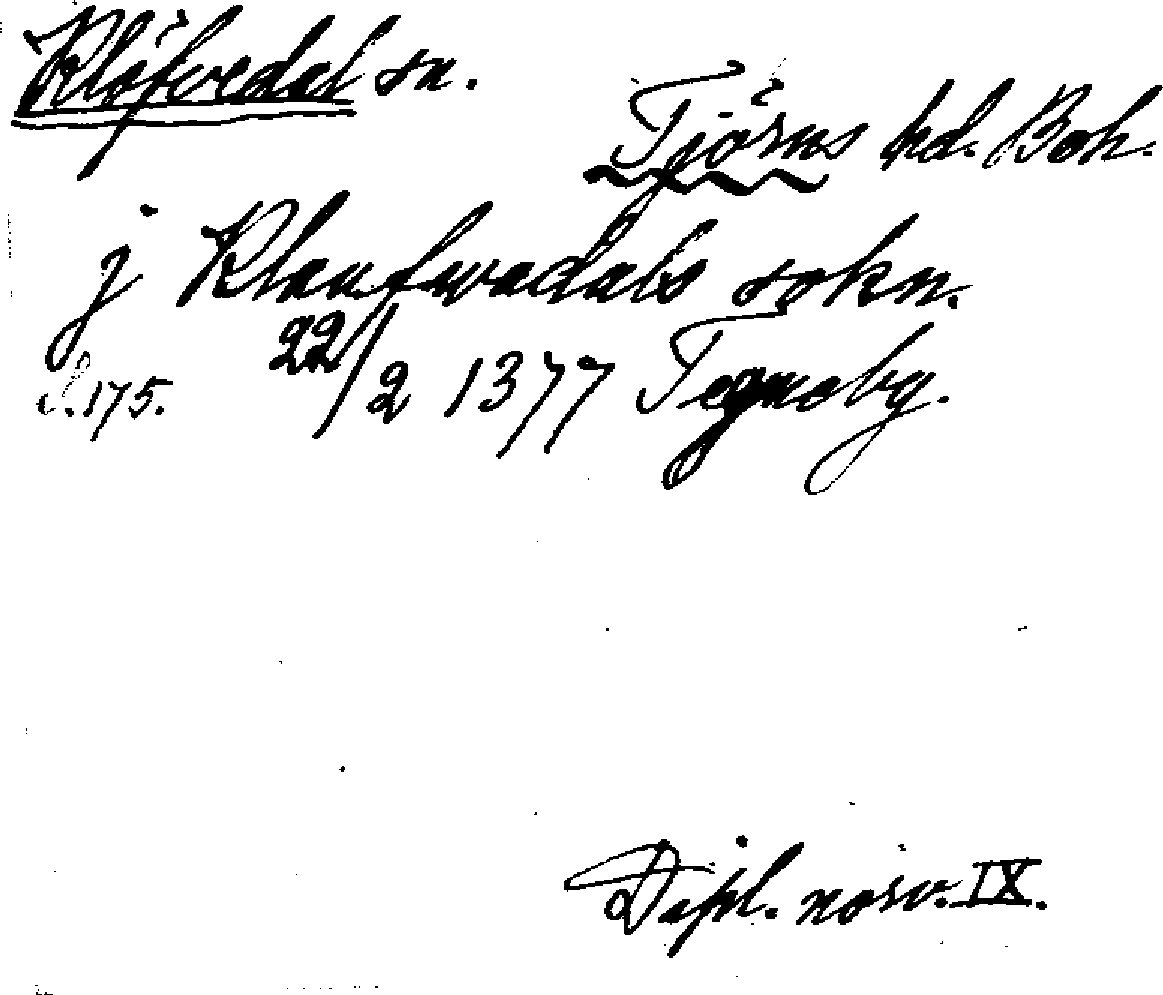 Klöfvedal sn.
Tjörns hd. Boh.
j Klaufwadals sokn.
S. 175. 22/2 1377 Tegneby.
Dipl. norv. IX.